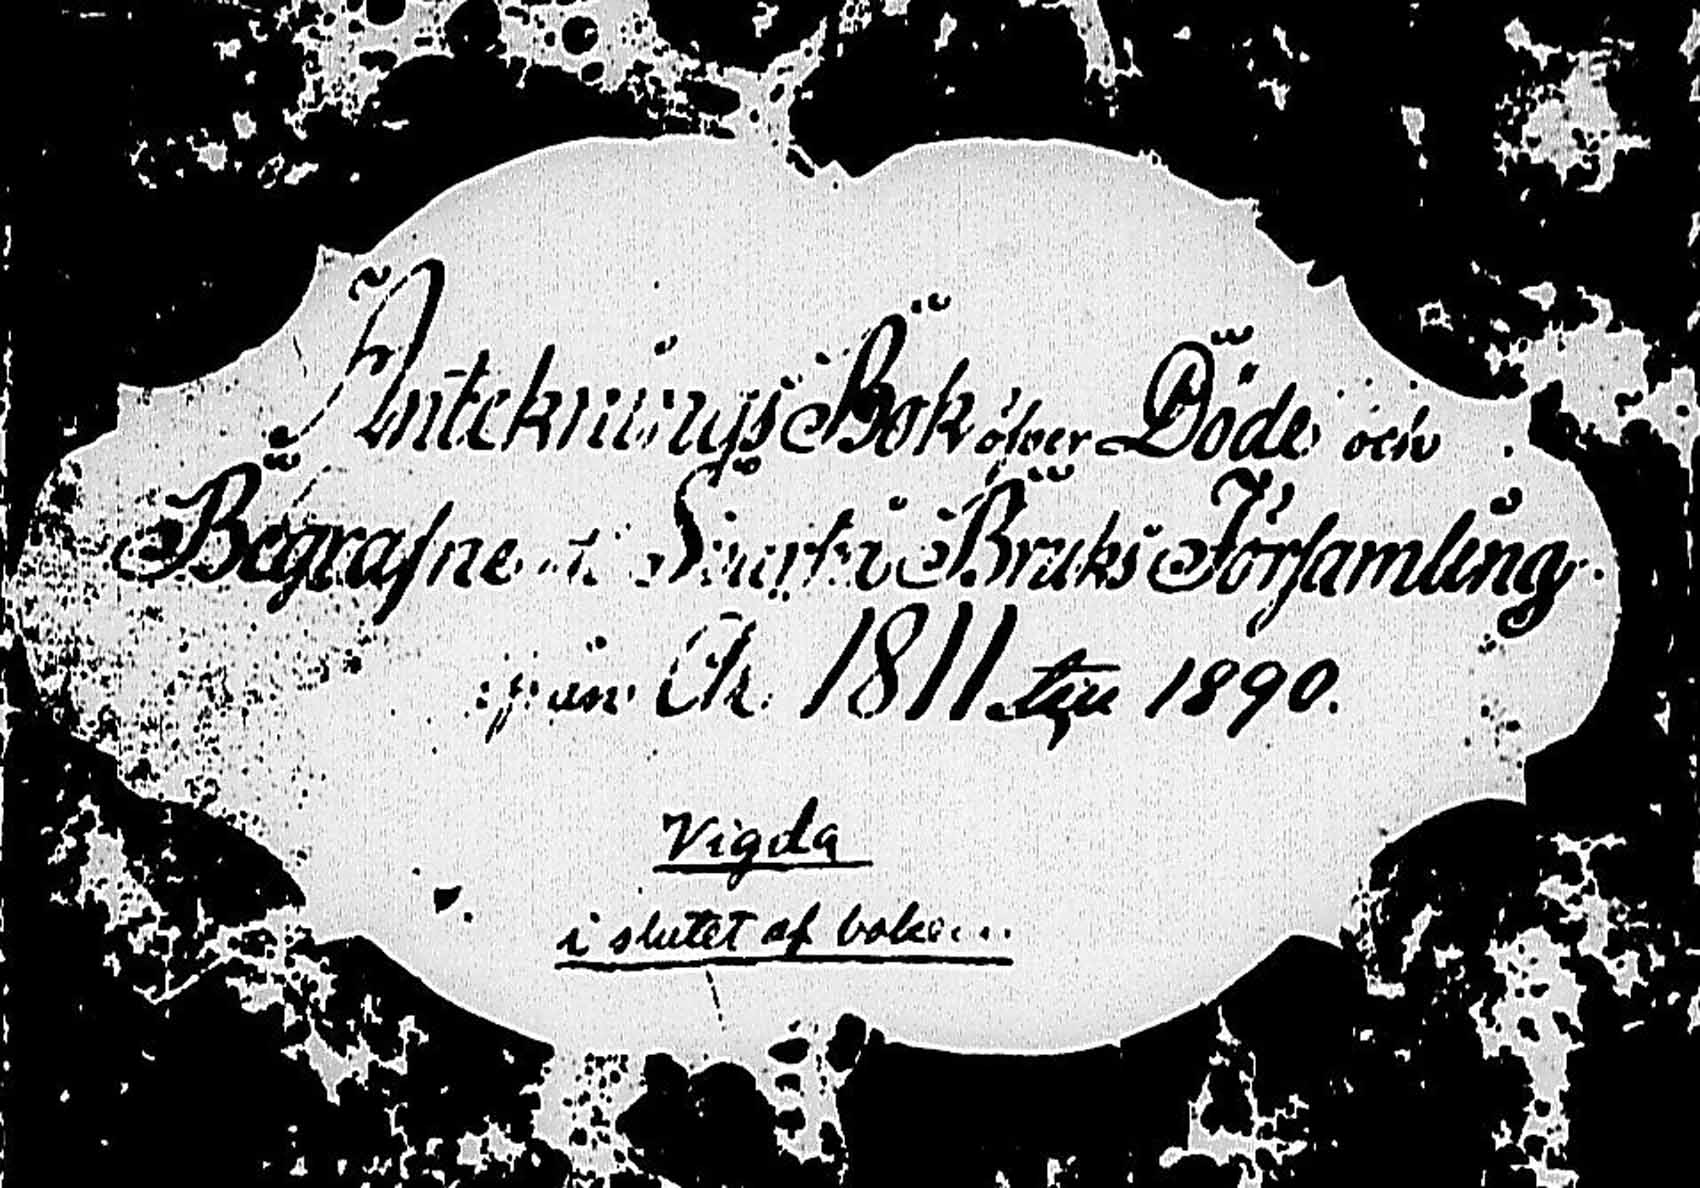 Anteknings Bok öfver Döde och
Begrafne i Svartå Bruks Församling
ifrån År 1811 till 1890.
Vigda
i slutet af boken